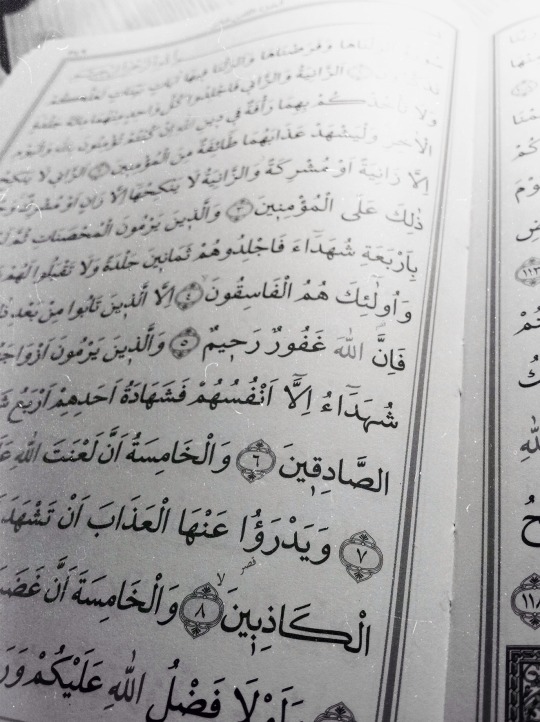 وَفَرَضْنَاهَا وَاَنْزَلْنَا فِيهَا اٰيَاتٍ بَيِّنَاتٍ لَعَلَّكُمْ
اَلزَّانِيَةُ وَالزَّانِي فَاجْلِدُوا كُلَّ وَاحِدٍ مِنْهُمَا مِائَةَ جَلْدَةٍ
وَلَا تَأْخُذْكُمْ بِهِمَا رَأْفَةٌ فِي دِينِ اللّٰهِ اِنْ كُنْتُمْ تُؤْمِنُونَ بِاللّٰهِ وَالْيَوْمِ
الْاٰخِرِ وَلْيَشْهَدْ عَذَابَهُمَا طَائِفَةٌ مِنَ الْمُؤْمِنِينَ ﴿٢﴾ اَلزَّانِي لَا يَنْكِحُ
اِلَّا زَانِيَةً اَوْ مُشْرِكَةً وَالزَّانِيَةُ لَا يَنْكِحُهَا اِلَّا زَانٍ اَوْ مُشْرِكٌ
ذٰلِكَ عَلَى الْمُؤْمِنِينَ ﴿٣﴾ وَالَّذِينَ يَرْمُونَ الْمُحْصَنَاتِ ثُمَّ
بِاَرْبَعَةِ شُهَدَٓاءَ فَاجْلِدُوهُمْ ثَمَانِينَ جَلْدَةً وَلَا تَقْبَلُوا لَهُمْ
وَاُولٰٓئِكَ هُمُ الْفَاسِقُونَ ﴿٤﴾ اِلَّا الَّذِينَ تَابُوا مِنْ بَعْدِ
فَاِنَّ اللّٰهَ غَفُورٌ رَحِيمٌ ﴿٥﴾ وَالَّذِينَ يَرْمُونَ
شُهَدَٓاءُ اِلَّٓا اَنْفُسُهُمْ فَشَهَادَةُ اَحَدِهِمْ اَرْبَعُ
الصَّادِقِينَ ﴿٦﴾ وَالْخَامِسَةُ اَنَّ لَعْنَتَ اللّٰهِ
﴿٧﴾ وَيَدْرَؤُا عَنْهَا الْعَذَابَ اَنْ تَشْهَدَ
الْكَاذِبِينَ ﴿٨﴾ وَالْخَامِسَةَ اَنَّ
وَلَوْلَا فَضْلُ اللّٰهِ عَلَيْكُمْ